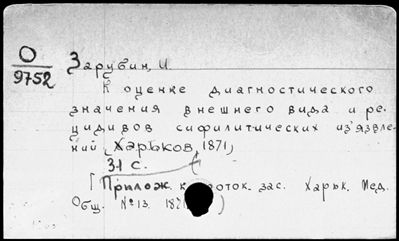 О
9752
Зарубин, И.
К оценке диагностического
значения внешнего вида и ре-
цидивов сифилитических из'язвле-
ний, Харьков, 1871,
31 с.
[Прилож. к проток. зас. Харьк. Мед.
Общ. № 13. 1871)